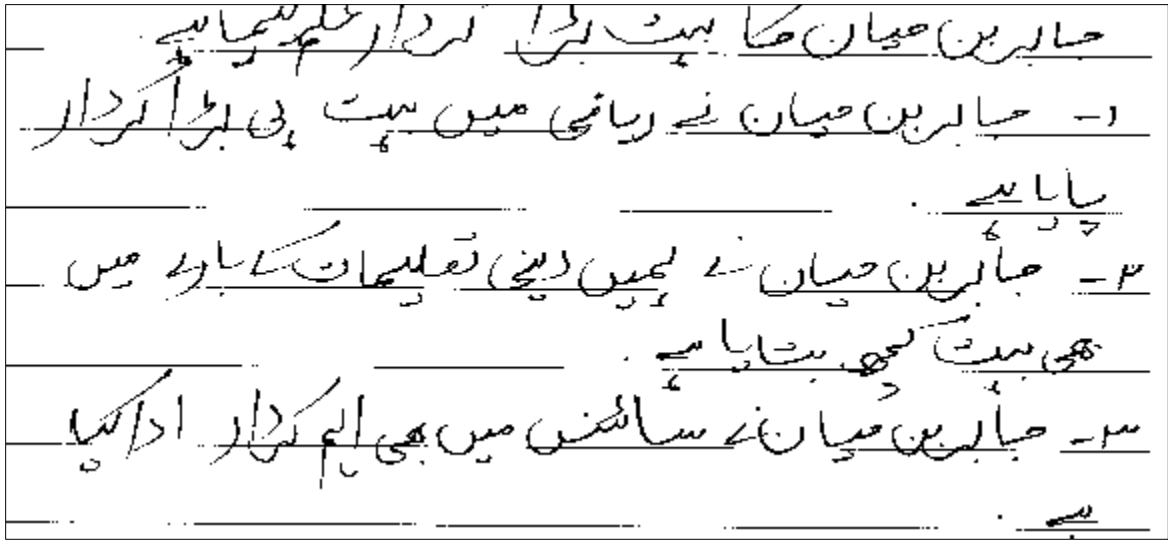 جابر بن حیان کا بہت بڑا کردار علم کیمیا ہے۔
۱- جابر بن حیان نے ریاضی میں بہت ہی بڑا کردار
پایا ہے۔
۲- جابر بن حیان نے ہمیں دینی تعلیمات کے بارے میں
بھی بہت کچھ بتایا ہے۔
۳- جابر بن حیان نے سائنس میں بھی اہم کردار ادا کیا
ہے۔